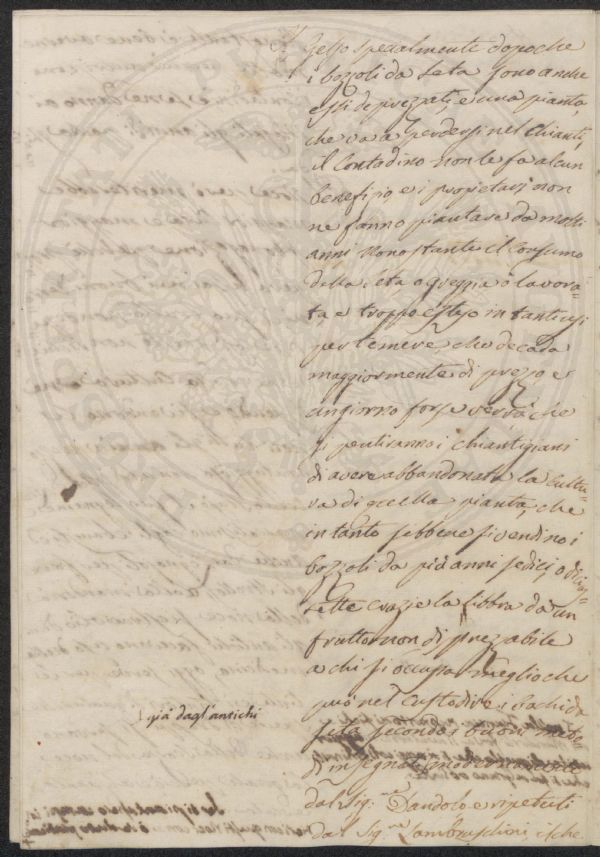 Gelso specialmente dopo che
i bozzoli da Seta sono anche
essi deprezzati, e una pianta,
che va a perdersi nel Chianti,
il Contadino non le fa alcun
benefizio, e i propietarj non
ne fanno piantare da molti
anni. Nonostante il Consumo
della Seta, o greggia o lavora=
ta, e troppo esteso in tanti usi
per temere, che decada
maggiormente di prezzo e
un giorno forse verrà che
si pentiranno i Chiantigiani
di avere abbandonata la Cultu=
ra di quella pianta, che
in tanto sebbene si vendino i
bozzoli da più anni sedici, o dicias=
sette crazie la libbra dà un
frutto non disprezzabile
a chi si occupa meglio che
può nel Custodire i Bachi da
seta secondo i buoni meto=
di insegnati
già dagl'antichi
dal Sig:re Dandolo e ripetuti
dal Sig:re Lambruschini, il che